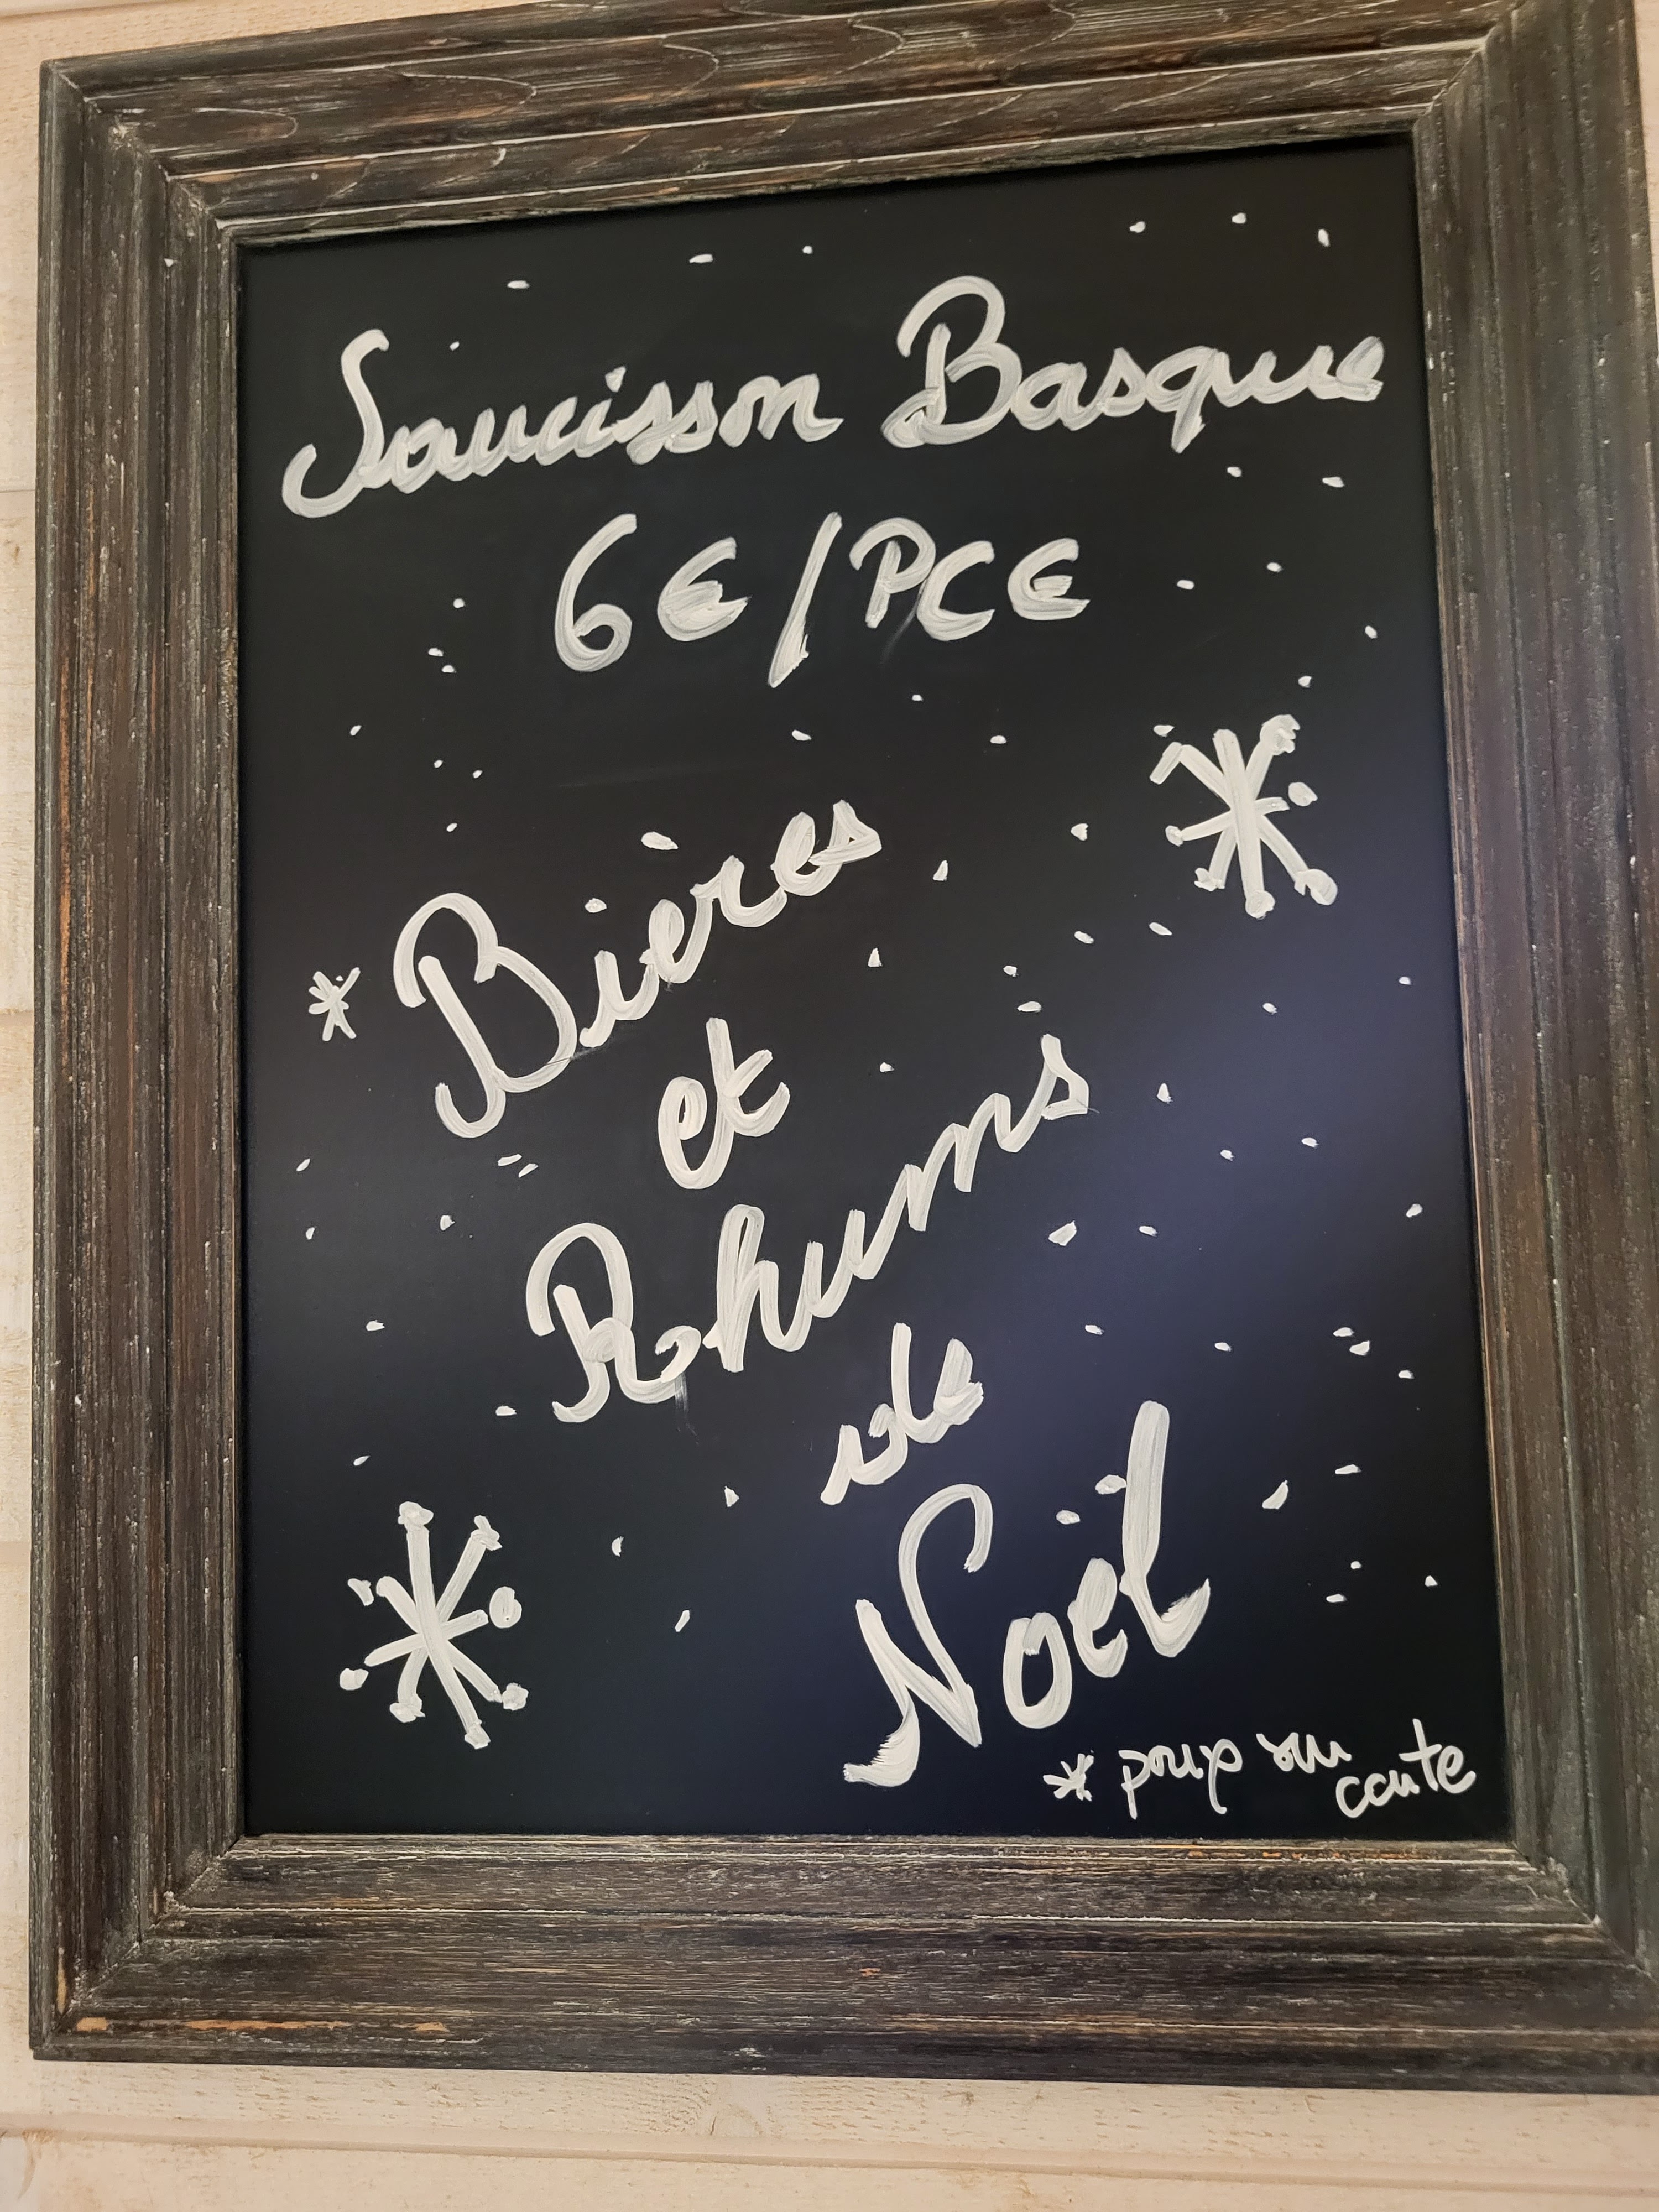 Saucisson Basque
6€/PCE
* Bières
et
Rhums
de
Noël
* sur
carte